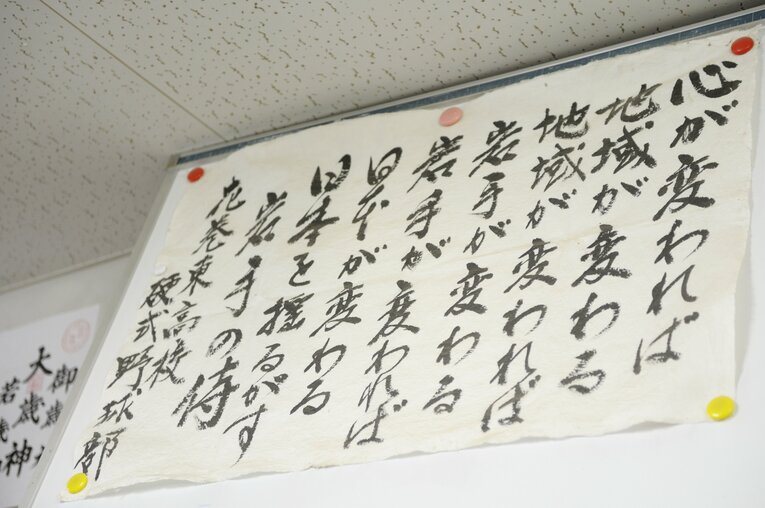 心が変われば
地域が変わる
地域が変われば
岩手が変わる
岩手が変われば
日本が変わる
日本を揺るがす
岩手の侍
花巻東高校
硬式野球部
御歳
大歳神
若歳